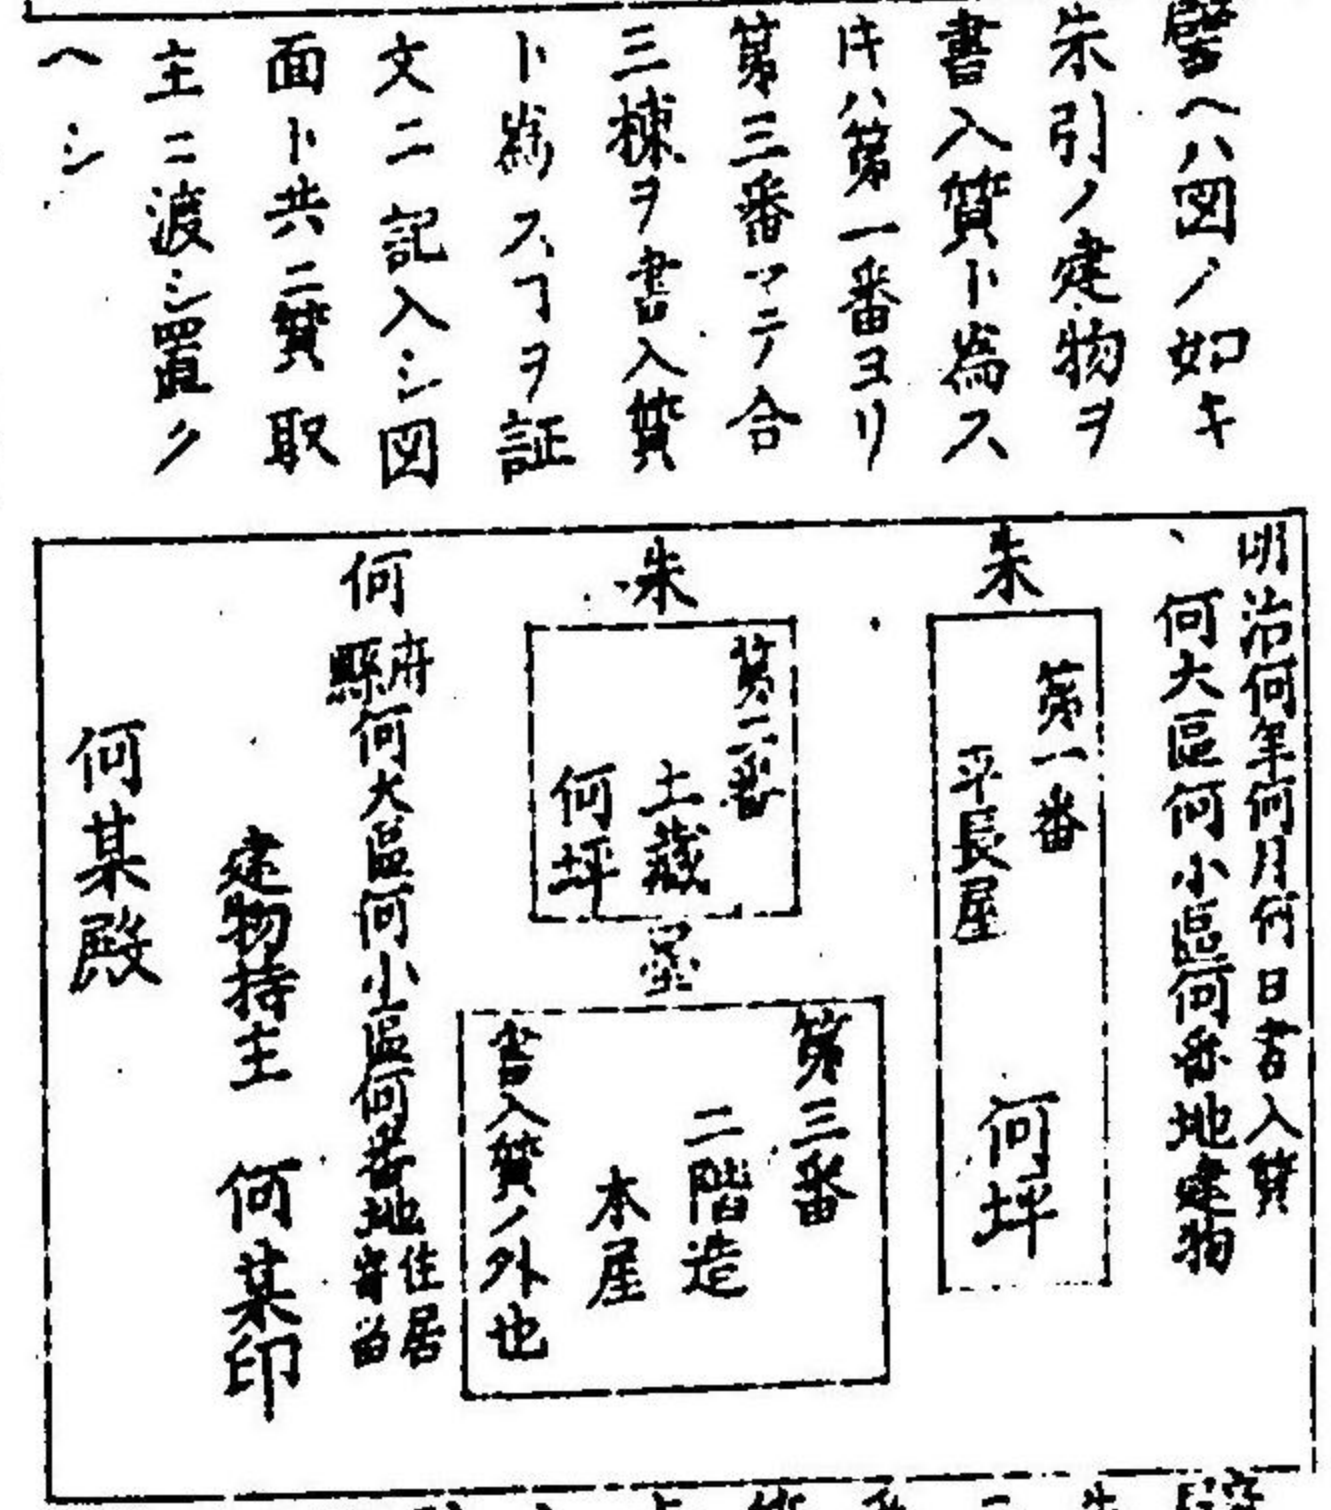 譬ヘハ図ノ如キ
朱引ノ建物ヲ
書入質ト為ス
キハ第一番ヨリ
第三番マテ合
三棟ヲ書入質
ト為スヿヲ証
文ニ記入シ図
面ト共ニ質取
主ニ渡シ置ク
ヘシ
明治何年何月何日書入質
何大區何小區何番地建物
朱
第一番
平長屋
何坪
朱
第二番
土蔵
何坪
墨
第三番
二階造
本屋
書入質ノ外也
何府縣何大區何小區何番地住居寄留
建物持主 何某印
何某殿